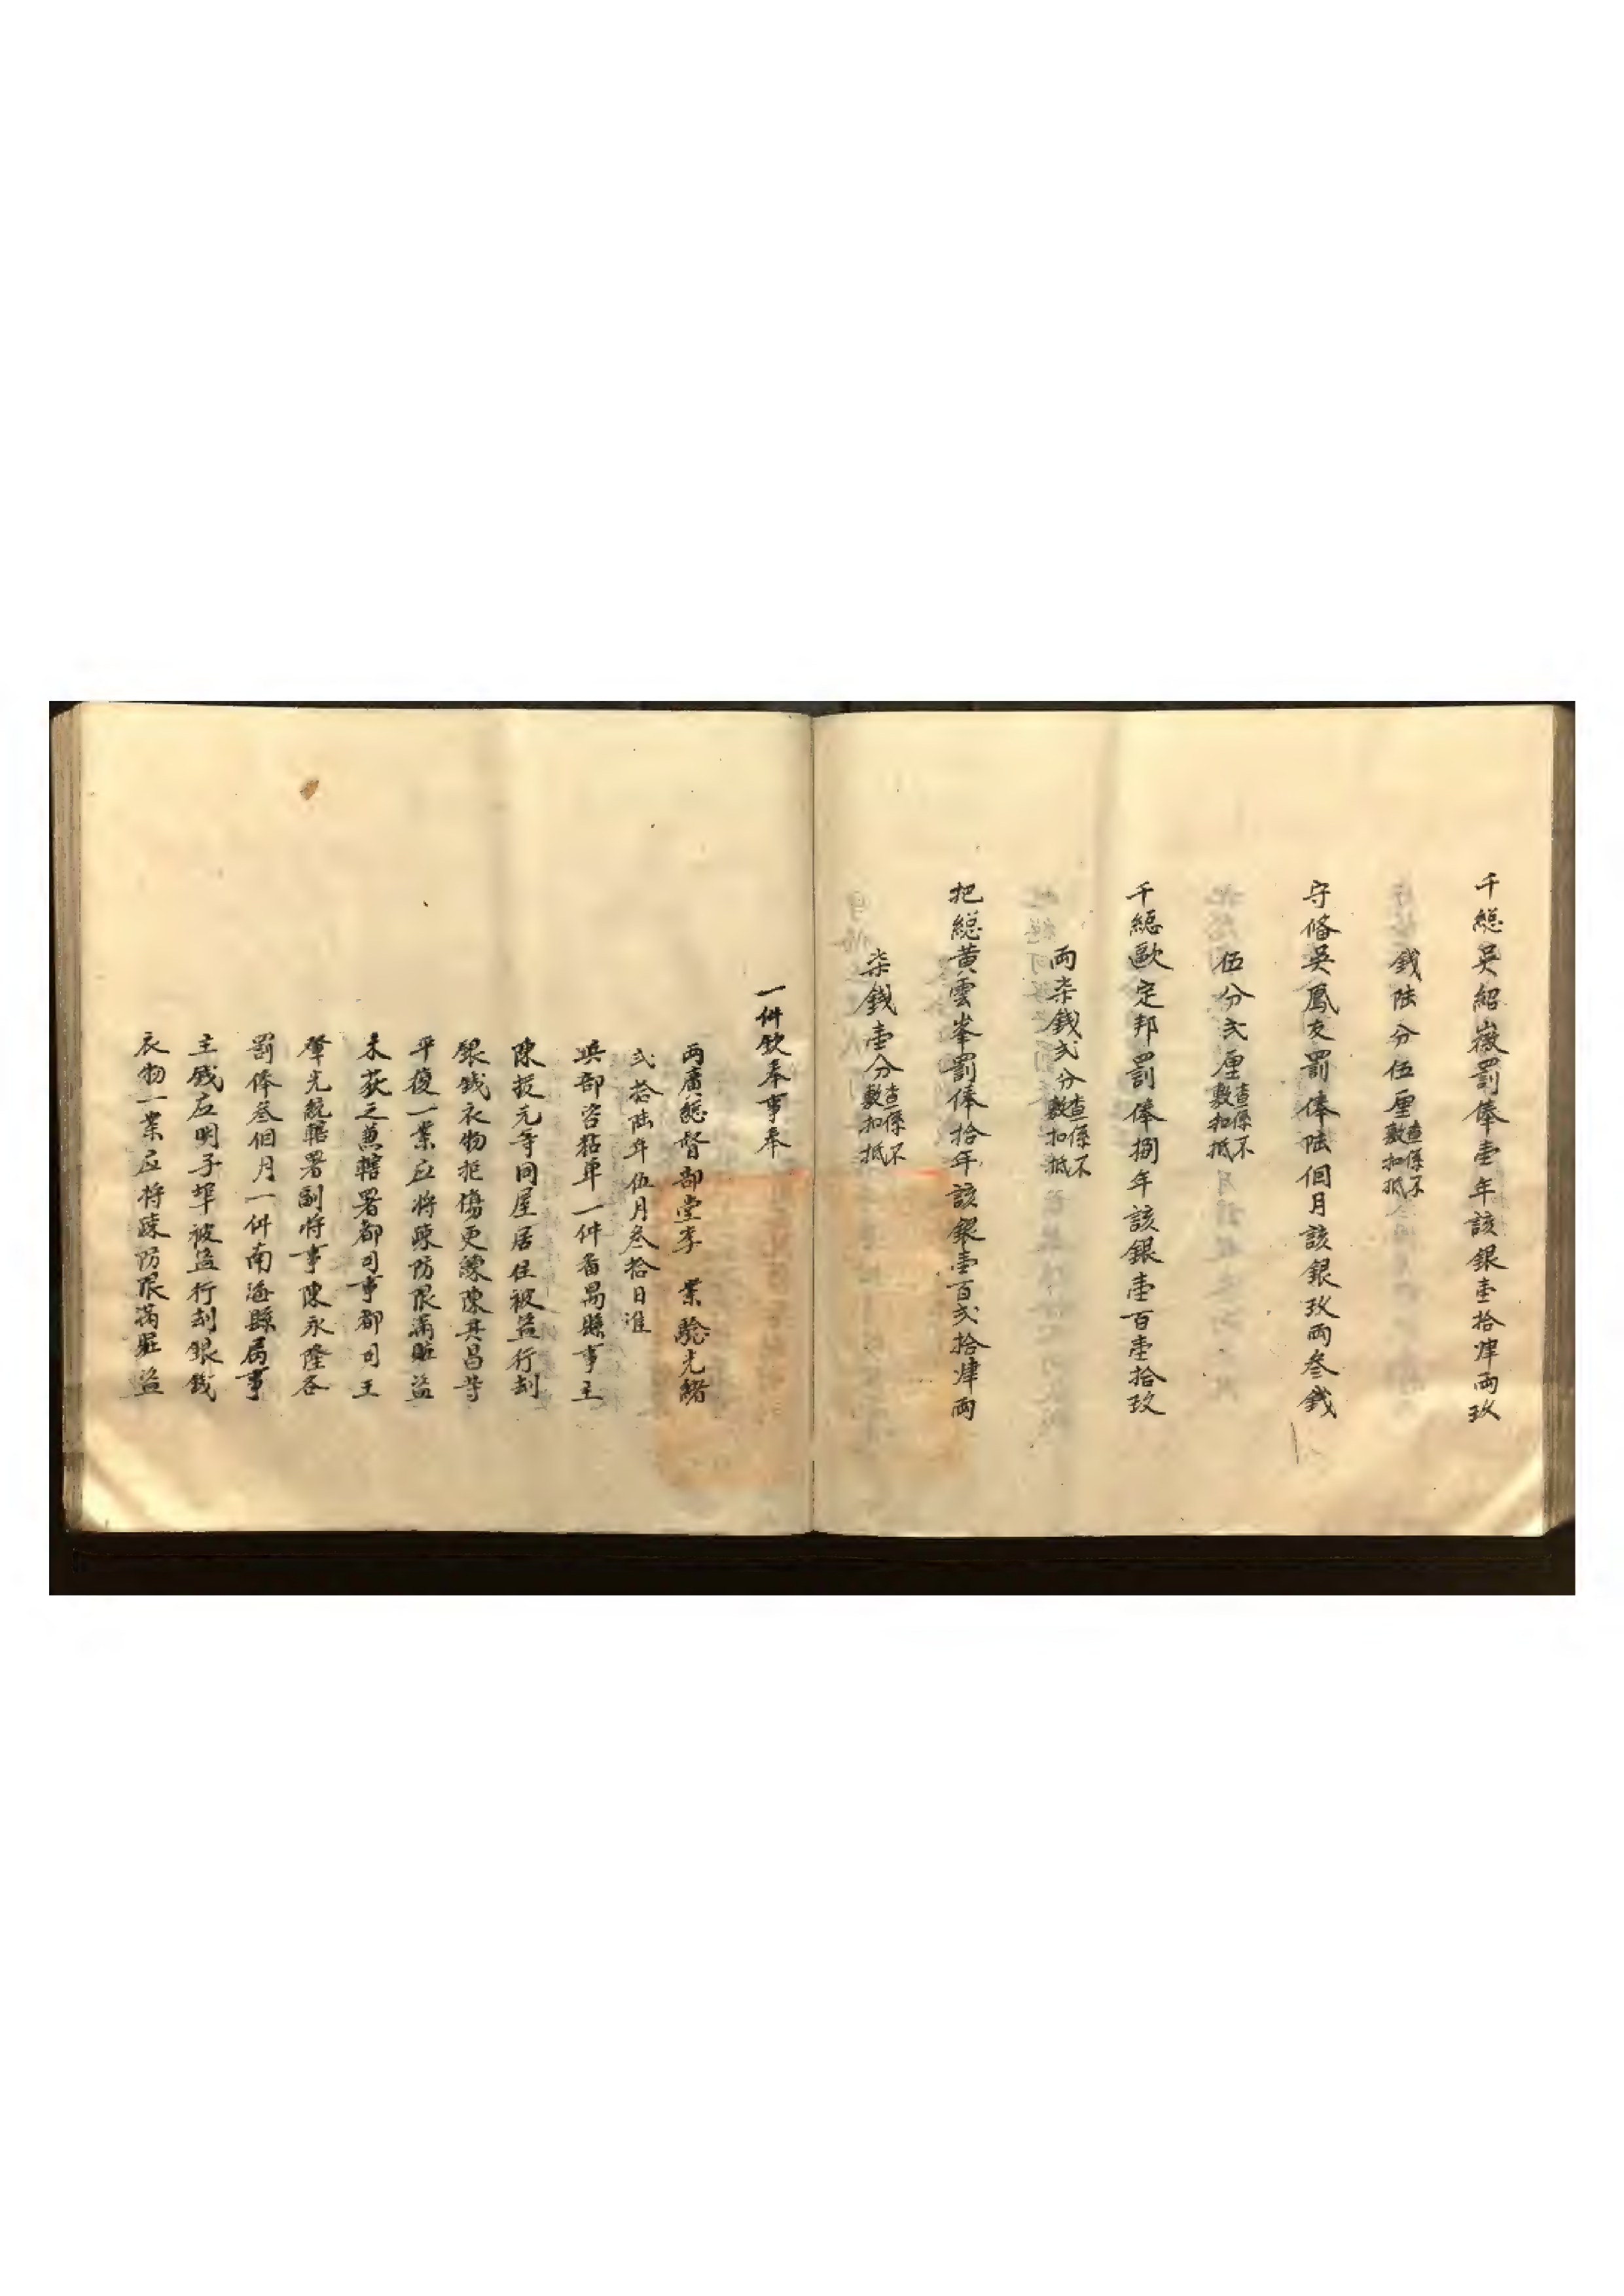 千總吳紹嶶罰俸壹年該銀壹拾肆両玖
錢陸分伍厘查係不敷扣抵
守俻吳鳳友罰俸陸個月該銀玖両叁錢
伍分弍厘查係不敷扣抵
千總歐定邦罰俸捌年該銀壹百壹拾玖
両柒錢弍分查係不敷扣抵
把縂黄雲峯罰俸拾年該銀壹百弍拾肆両
柒錢壹分查係不敷扣抵
一件欽奉事奉
両廣總督部堂李 業驗光緒
弍拾陆年伍月叁拾日准
兵部咨粘单一件畨禺縣事主
陳拔元等同屋居住被盗行刼
銀錢衣物拒傷更練陳其昌等
平復一業应将踈防限滿賍盗
未获之兼轄署都司事都司王
肇元統轄署副将事陳永隆各
罰俸叁個月一件南海縣属事
主錢应明子埠被盗行刼銀錢
衣物一業应将踈防限滿賍盗